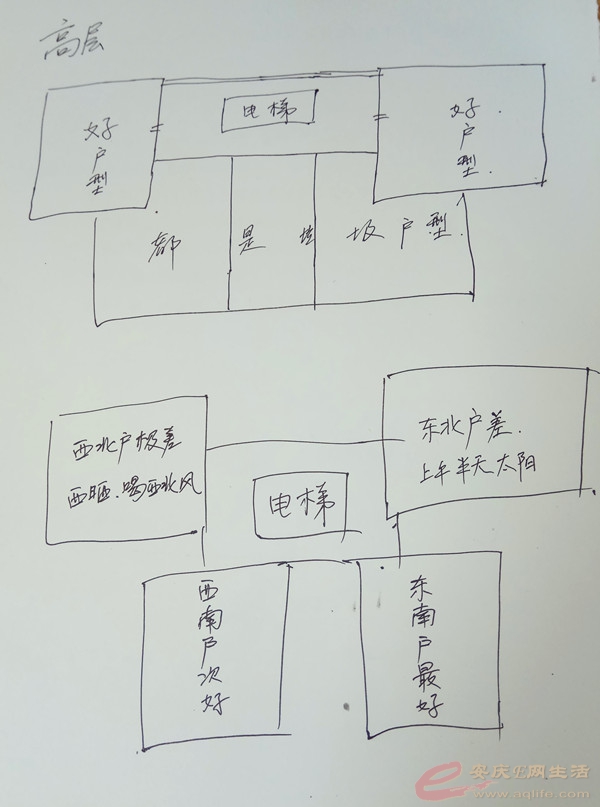 高层
电梯
好户型
好户型
都是垃圾户型
西北户极差
西晒、喝西北风
东北户差.
上午半天太阳
电梯
西南户次好
东南户最好
安庆E网生活
www.aqlife.com